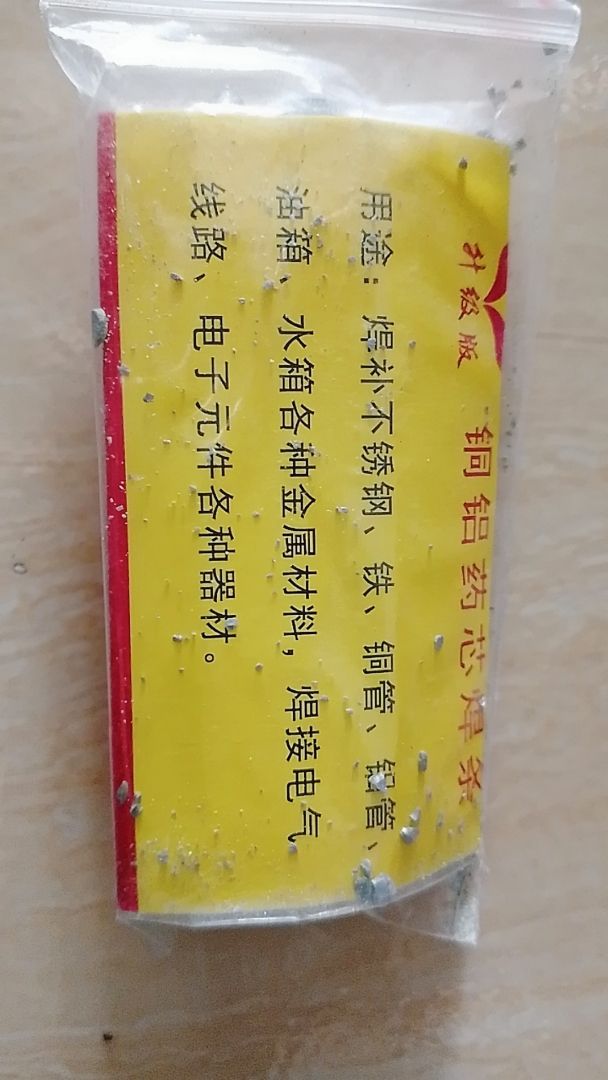 升级版 铜铝药芯焊条
用途:焊补不锈钢、铁、铜管、铝管、
油箱、水箱各种金属材料,焊接电气
线路、电子元件各种器材。